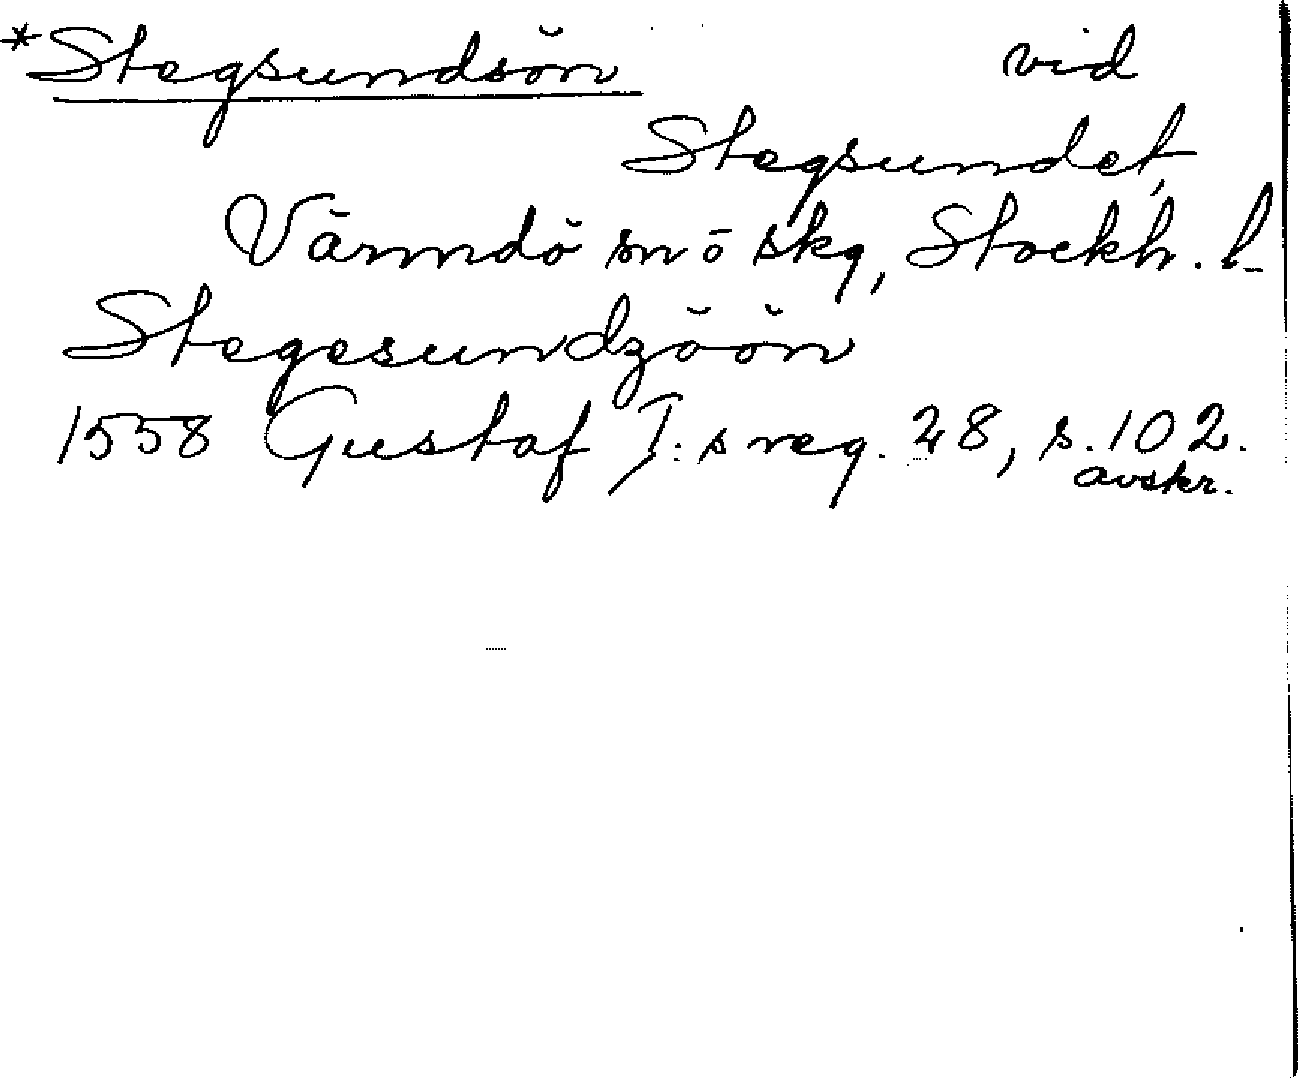 *Stegsundsön vid
Stegsundet,
Värmdö snö skg, Stockh. l.
Stegesundzöön
1558 Gustaf I:s reg. 28, s. 102.
avskr.